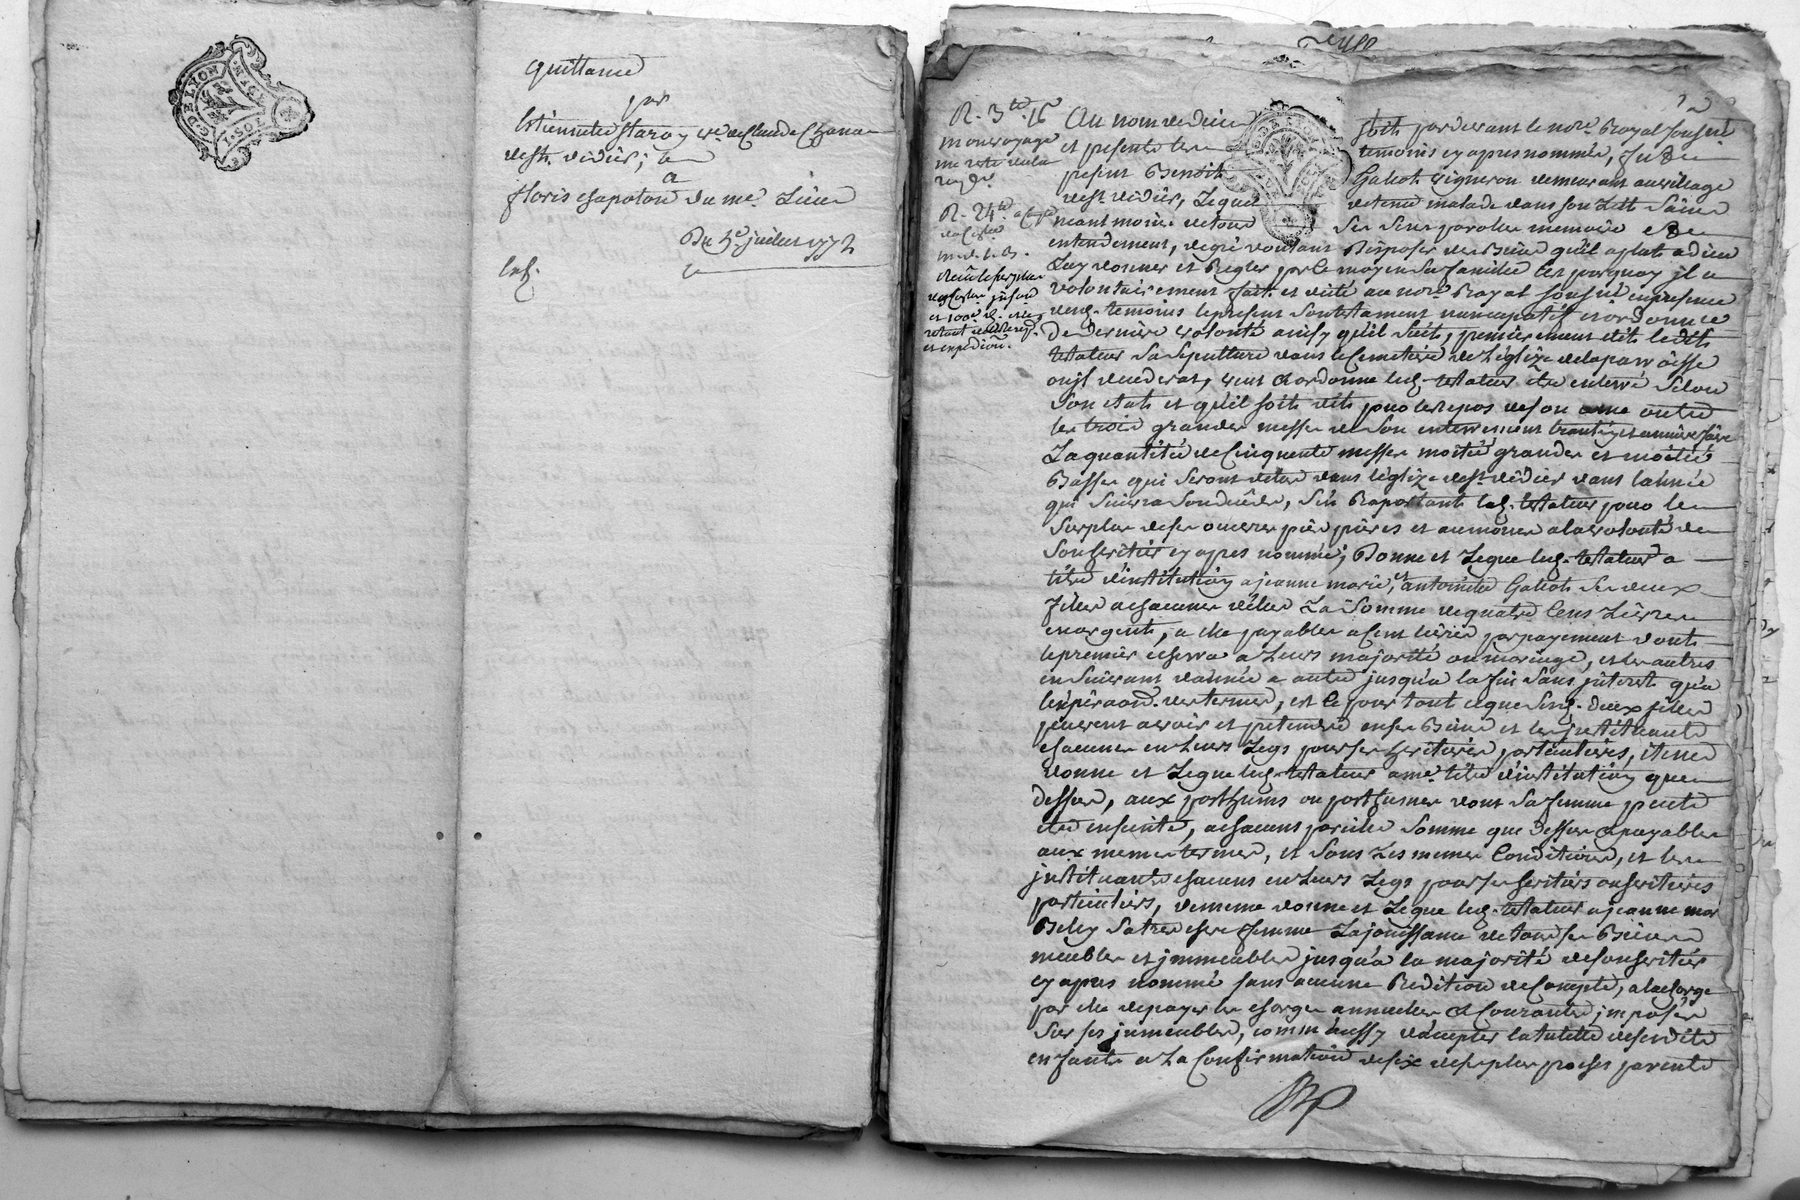 G. DE LYON
quittance
par
Estiennette staron ve. de Claude Chana
de st. didier; a
a
floris chapoton du me. Lieu
Du 5e juillet 1772
Au nom de dieu soit par devant le nore. Royal sousné
et presents les temoins cy apres nommés, fut
present Benoit Galiot vigneron demeurant au village
de st. didier, Lequel detenu malade dans son Lit Sain
neant moins de tous Ses Sens parole memoire et
entendement, de gré voulant Disposer des Biens qu'il a plut a dieu
Luy donner et Regler par le moyen Sa famille C'est pourquoy il a
volontairement fait et dicté au nore. Royal sousné en presence
desd. temoins le present Son testament nuncupatif et ordonnance
De Derniere volonté ainsy qu'il Suit, premierement élit ledit
testateur Sa Sepulture dans le Cemetiere de L'églize de la parroisse
ou il decedera, veut et ordonne led. testateur être enterré Selon
Son etat et qu'il soit dit pour le repos de son ame outre
les trois grandes messes de Son enterrement trantin et anniversaire
La quantité de Cinquante messes moitié grandes et moitié
Basses qui seront dites dans l'églize de st. didier dans l'année
qui Suivra Son decés, S'en Raportant led. testateur pour le
Surplus de ses oeuvres pies prieres et aumones a la volonté de
Son heritier cy apres nommé; Donne et Legue led. testateur a
titre d'institution a jeanne marie, et antoinette Galiot Ses deux
filles a chacune d'elles La Somme de quatre Cens Livres
en argent, a elle payable a Cent livres par payement dont
le premier echerra a Leurs majorité ou mariage, et les autres
en Suivant d'année a autre jusqu'a la fin Sans interet qu'a
l'expiraon. des termes, et ce pour tout ce que Sesd. deux filles
peuvent avoir et pretendre en ses Biens et les instituant
chacune en Leurs Legs pour ses heritieres particulieres, item
donne et Legue led. testateur a me. titre d'institution que
dessus, aux posthumes ou posthumes dont Sa femme peut
etre enceinte, a chacuns pareille Somme que dessus et payable
aux memes termes, et Sous Les memes Conditions, et les
instituant chacuns en Leurs Legs pour ses heritiers ou heritieres
particuliers, de meme donne et Legue led. testateur a jeanne mar
Sa tres chere femme La jouissance de tous ses Biens
meubles et immeubles jusqu'a la majorité de son heritier
cy apres nommé sans aucune Redition de Compte, a la charge
par elle de payer les charges annuelles et Courantes imposées
Sur ses immeubles, comm'aussy d'accepter la tutelle de sesdits
enfants a La Confirmation de six de ses plus proches parents